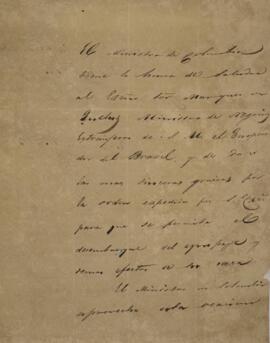 El Ministro de Colombia
tiene la honra de saludar
al Exmo Sor Marques de
Ministro de Negocios
Estrangeros de S. M. el Empera
dor del Brasil, y de dar
las mas sinceras gracias por
la orden expedida por S. E.
para que se permita el
desembarque del equipage y
demas efectos de su casa
El Ministro de Colombia
aprovecha esta ocasion